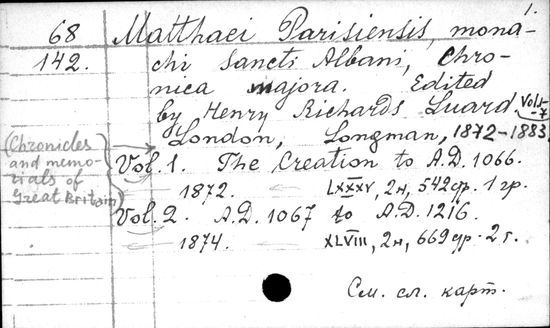 1.
68 Matthaei Parisiensis, mona-
142. chi Sancti Albani, Chro-
nica majora. Edited
by Henry Richards Luard. Vols 1-7
London, Longman, 1872-1883
(Chronicles
and memo-
rials of
Great Britain)
Vol. 1. The Creation to A.D. 1066.
1872. LXXXV, 2н, 542 стр. 1 гр.
Vol. 2. A.D. 1067 to A.D. 1216.
1874. XLVIII, 2н, 669 стр. 2 г.
См. сл. карт.